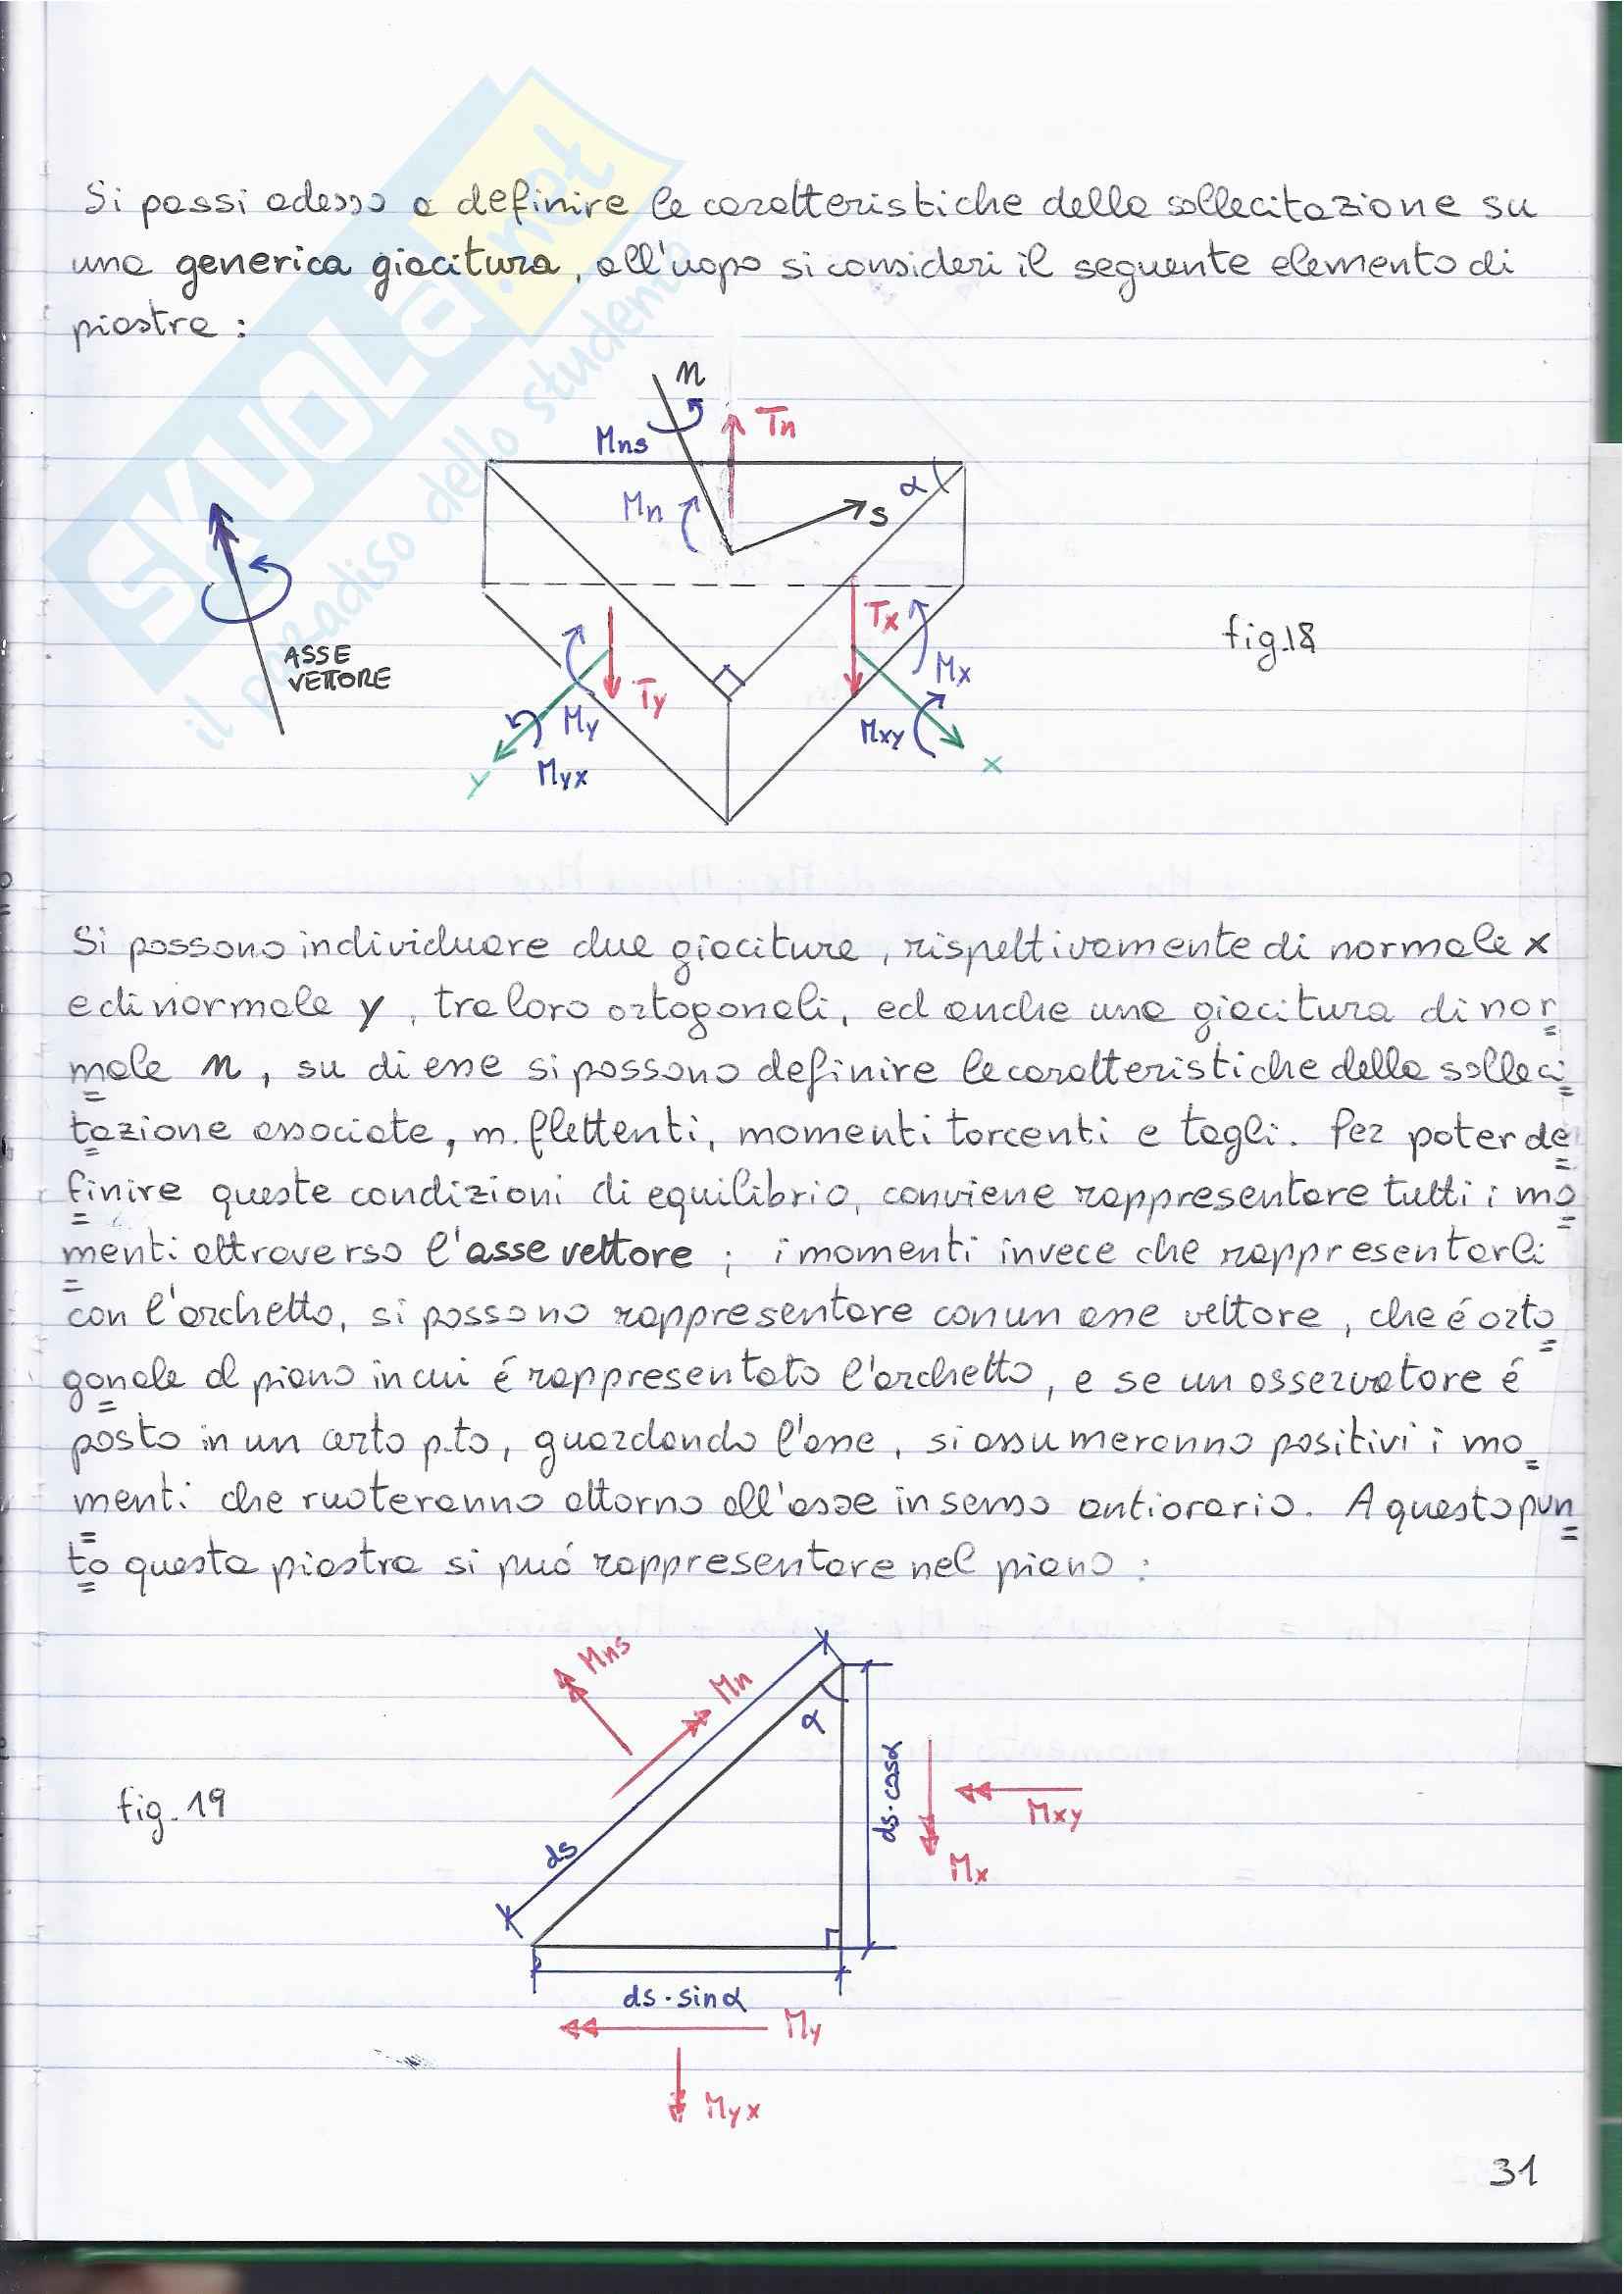 Si passi adesso a definire le caratteristiche della sollecitazione su
una generica giacitura, all'uopo si consideri il seguente elemento di
piastra:
n
Tn
Mns
α
Mn
s
Tx
ASSE
VETTORE
Mx
Ty
My
Mxy
Myx
x
y
fig.18
Si possono individuare due giaciture, rispettivamente di normale x
e di normale y, tra loro ortogonali, ed anche una giacitura di nor
male n, su di esse si possono definire le caratteristiche della solleci
tazione associate, m. flettenti, momenti torcenti e tagli. Per poter de
finire queste condizioni di equilibrio, conviene rappresentare tutti i mo
menti attraverso l'asse vettore; i momenti invece che rappresentarli
con l'archetto, si possono rappresentare con un asse vettore, che é orto
gonale al piano in cui é rappresentato l'archetto, e se un osservatore é
posto in un certo p.to, guardando l'asse, si assumeranno positivi i mo
menti che ruoteranno attorno all'asse in senso antiorario. A questo pun
to questa piastra si puó rappresentare nel piano:
Mns
Mn
α
ds
ds·cosα
Mxy
Mx
fig.19
ds·sinα
My
Myx
31
SKUOLA.net
il paradiso dello studente